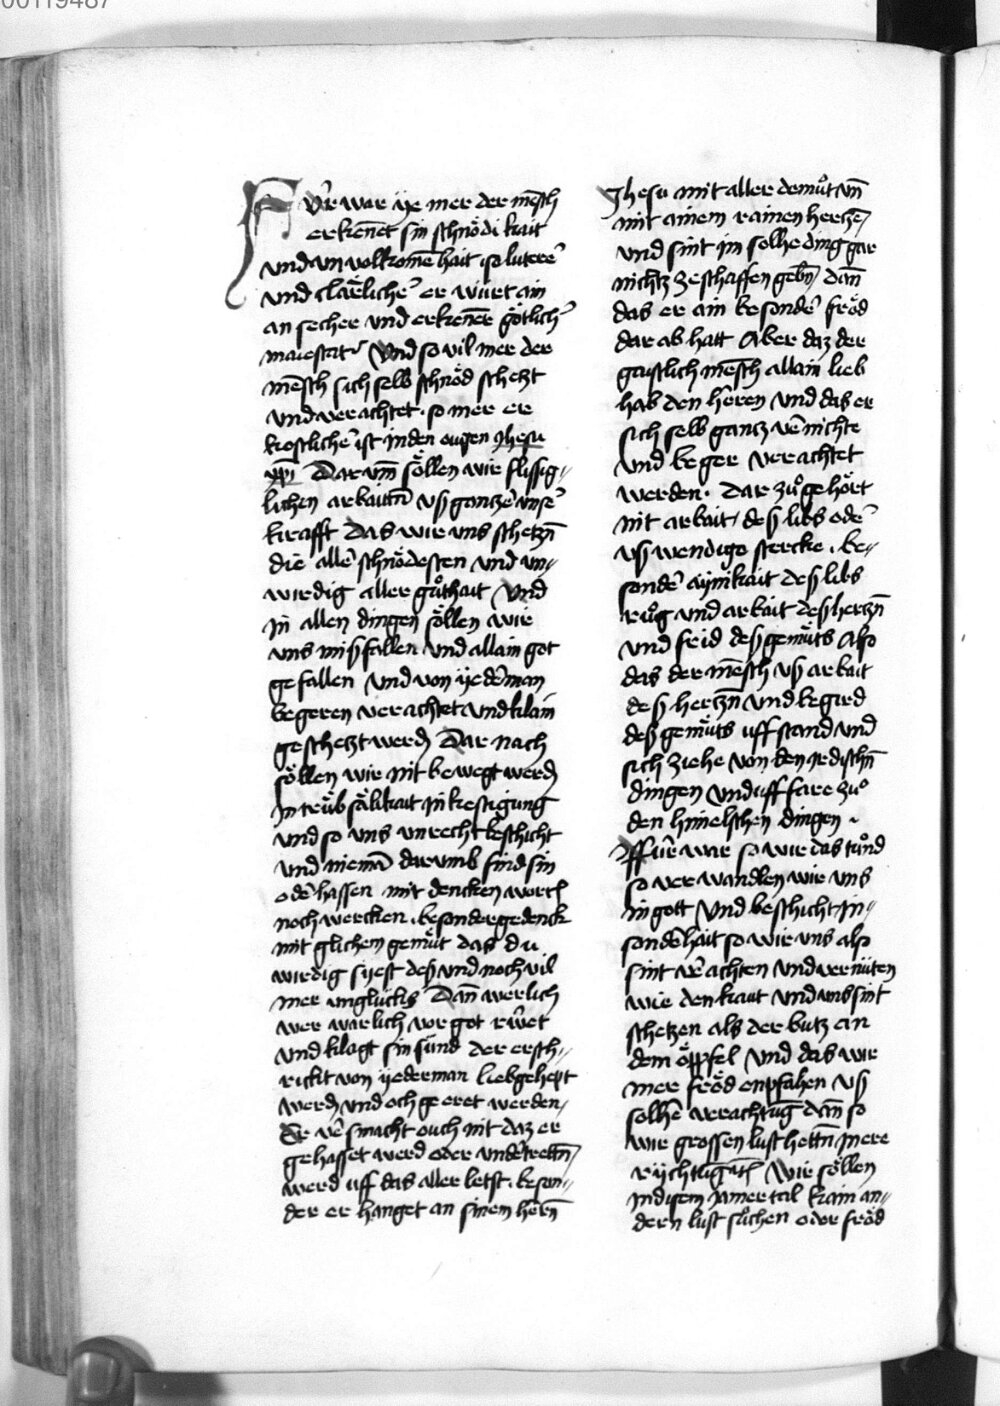 00119487
Fv̄r war ye mer der mēsch
erkēnet sin schnödi kait
vnd vn volkomē hait · so luterē
vnd clärlichē er würt ain
an secher vnd erkēner götlichē
maiestat Vnd so vil mer der
mēsch sich selb schnöd schetzt
vnd verachtet · so mer er
kostlichē ist in den ougen Jhesu
xp̄i Dar vm̄ söllen wir flissig-
lichen arbaitt̄n vs gantzē vnsē
krafft Das wir vns schetzn̄
die allē schnödesten vnd vn-
wirdig aller gůthait Vnd
in allen dingen söllen wir
vns misfallen vnd allain got
gefallen vnd von yedēman
begeren verachtet vnd klain
geschetzt werdn̄ Dar nach
söllen wir nit bewegt werdn̄
In trübsälikait in kestigung
vnd so vns vnrecht beschicht
vnd niemā darumb find sin
odē hassen mit dencken wortn̄
noch wercken · besonder gedenck
mit glichem gemüt das du
wirdig syest des vnd noch vil
mer vnglücks Dan̄ werlich
wer warlich vor got rüwet
vnd klagt sin sünd der ersch-
rickt von yederman liebgehept
werdn̄ vnd och geeret werden
Er vē smacht ouch nit daz er
gehasset werd oder vndētrettn̄
werd uff das aller letst · beson-
der er hanget an sinem hērn̄
Jhesu mit aller demůt vn̄
mit ainem rainen hertzē
vnd sint im solhe ding gar
nichtz ze schaffen gebn̄ dan̄
das er ain besondē fröd
dar ab hatt Aber daz der
gaistlich mēsch allain lieb
hab den hēren vnd das er
sich selb gantz vē nichte
vnd beger verachtet
werden · dar zů gehört
nit arbait des libs odē
vswendige stercke · be-
sondē aynikait des libs
růg vnd arbait des hertzn̄
vnd frid des gemüts Also
das der mēsch vs arbait
des hertzn̄ vnd begird
des gemüts uff stand vnd
sich ziehe von den irdischn̄
dingen vnd uff fare zů
den himelschen dingen ·
Ffür war so wir das tůnd
so verwandlen wir vns
in gott Vnd beschicht in-
sondēhait so wir vns also
sint vē achten vnd vernüten
wie den kraut vnd vns sint
schetzen als der butz an
dem öppfel vnd das wir
mer fröd enpfahen vs
solhē verachtūg dan̄ so
wir grossen lust hettn̄ in ere
Wir söllen
in disem jamertal kain an-
dern lust sůchen oder fröd